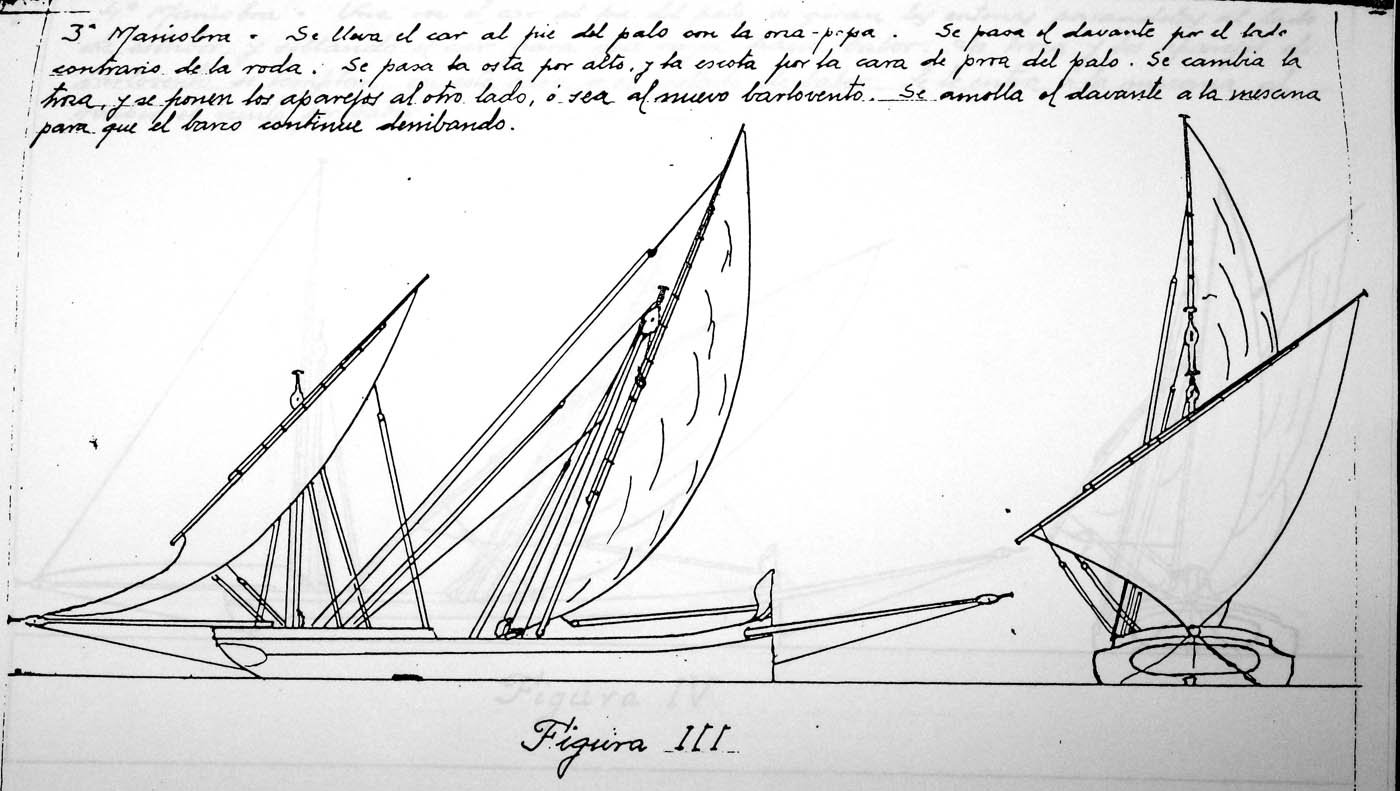 3ª Maniobra. Se lleva el car al pie del palo con la orza-popa. Se pasa el davante por el lado
contrario de la roda. Se pasa la osta por alto, y la escota por la cara de proa del palo. Se cambia la
troza, y se ponen los aparejos al otro lado, ó sea al nuevo barlovento. Se amolla el davante a la mesana
para que el barco continue derribando.
Figura III